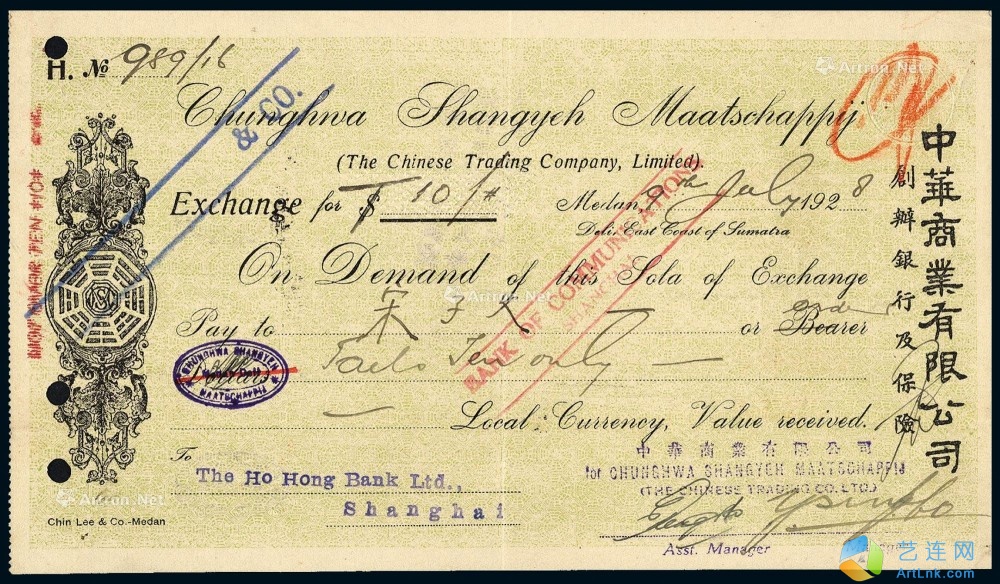 H. № 989/16
& CO.
Chunghwa Shangyeh Maatschappij
(The Chinese Trading Company, Limited).
Exchange for T$ 10/#
Medan, 9th July 1928
Deli, East Coast of Sumatra
On Demand of this Sola of Exchange
Pay to 宋子文 or Bearer
order
Taels Ten only
Dollars
CHUNGHWA SHANGYEH
MAATSCHAPPIJ
Local Currency, Value received.
BANK OF COMMUNICATIONS
SHANGHAI
To
The Ho Hong Bank Ltd.,
Shanghai
中華商業有限公司
for CHUNGHWA SHANGYEH MAATSCHAPPIJ
(THE CHINESE TRADING CO. LTD.)
Asst. Manager
Chin Lee & Co.-Medan
中華商業有限公司
創辦銀行及保險
Artron.Net
Artron.Net
Artron.Net
Artron.Net
艺连网
ArtLnk.com